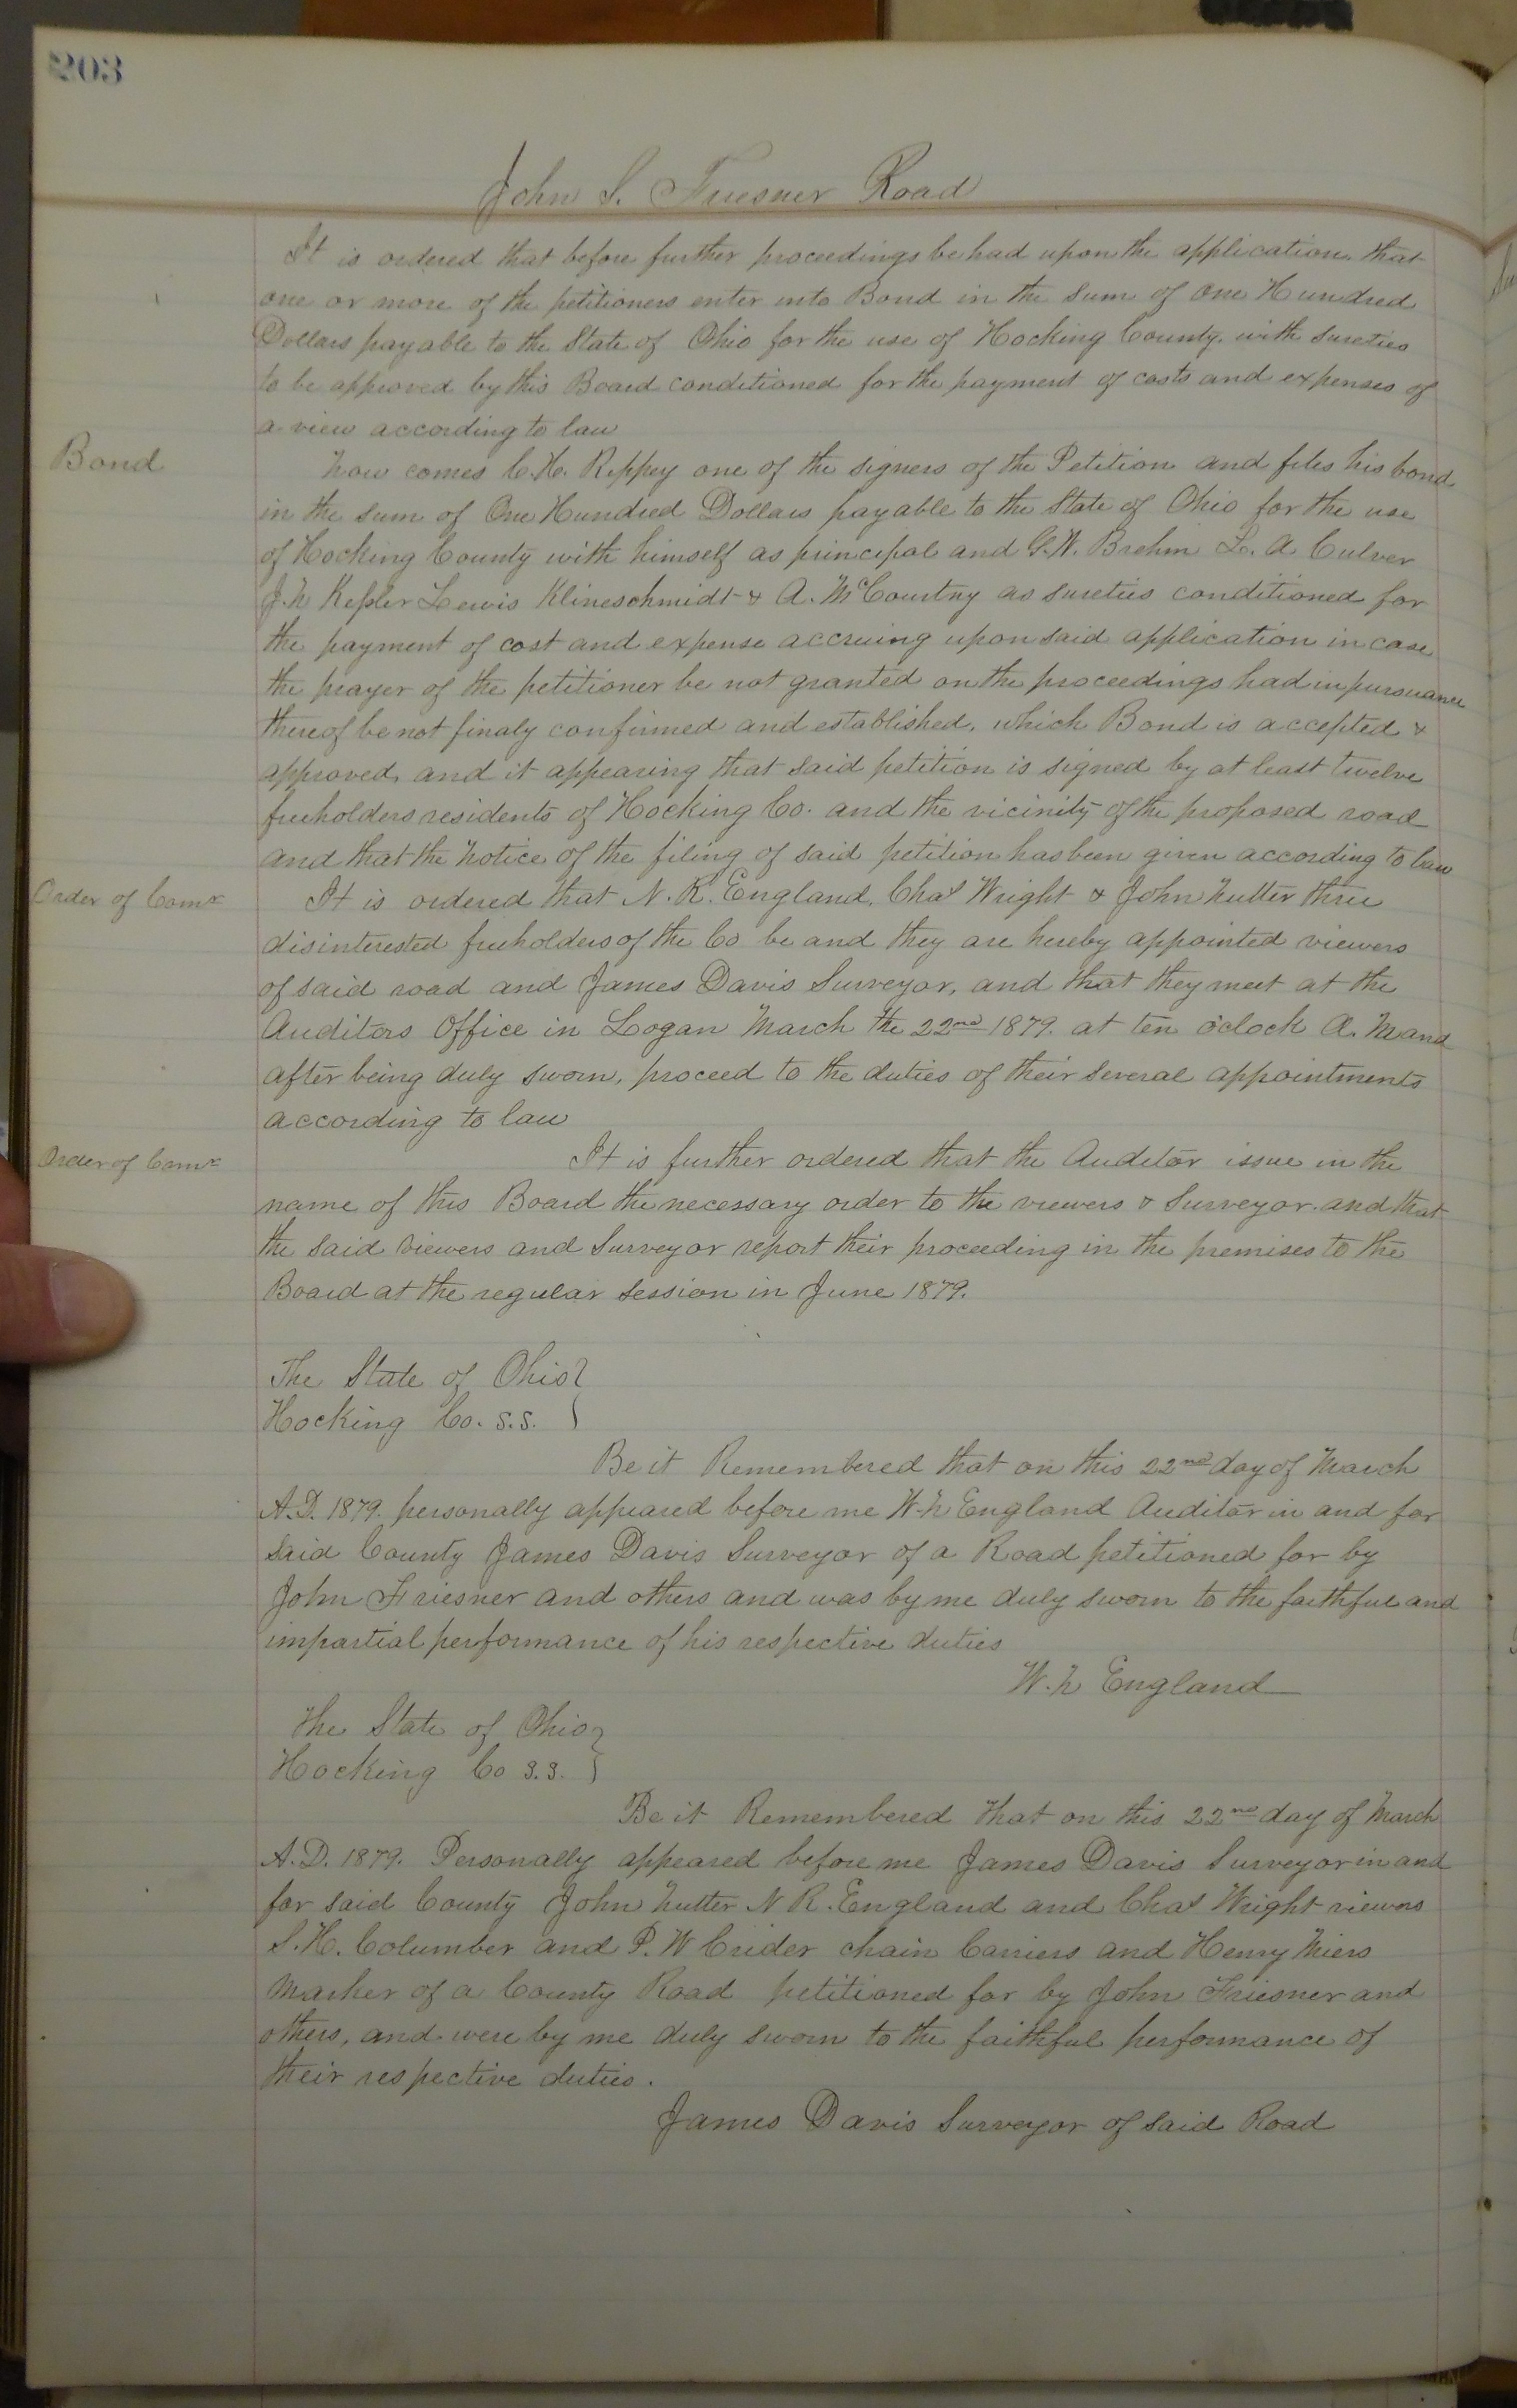 203
John S. Friesner Road
It is ordered that before further proceedings be had upon the application. that
one or more of the petitioners enter into Bond in the Sum of One Hundred
Dollars payable to the State of Ohio for the use of Hocking County. with Sureties
to be approved by this Board conditioned for the payment of costs and expenses of
a view according to law
Bond
Now comes C. H. Rippey one of the signers of the Petition and files his bond
in the sum of One Hundred Dollars payable to the State of Ohio for the use
of Hocking County with himself as principal and G. W. Brehm L. A. Culver
J. N Kepler Lewis Klineschmidt & A. McCourtny as sureties conditioned for
the payment of cost and expense accruing upon said application in case
the prayer of the petitioner be not granted on the proceedings had in pursuance
thereof be not finaly confirmed and established, which Bond is accepted &
approved, and it appearing that said petition is signed by at least twelve
freeholders residents of Hocking Co. and the vicinity of the proposed road
and that the Notice of the filing of said petition has been given according to law
Order of Comr
It is ordered that N. R. England, Chas Wright & John Nutter three
disinterested freeholders of the Co be and they are hereby appointed viewers
of said road and James Davis Surveyor, and that they meet at the
Auditors Office in Logan March the 22nd 1879. at ten o'clock A. M and
after being duly sworn, proceed to the duties of their several appointments
according to law
Order of Comr
It is further ordered that the Auditor issue in the
name of this Board the necessary order to the viewers & Surveyor. and that
the said viewers and Surveyor report their proceeding in the premises to the
Board at the regular session in June 1879.
The State of Ohio }
Hocking Co. S.S. }
Be it Remembered that on this 22nd day of March
A.D. 1879. personally appeared before me W. N England Auditor in and for
said County James Davis Surveyor of a Road petitioned for by
John Friesner and others and was by me duly sworn to the faithful and
impartial performance of his respective duties
W. N England
The State of Ohio }
Hocking Co S.S. }
Be it Remembered that on this 22nd day of March
A.D. 1879. Personally appeared before me James Davis Surveyor in and
for said County John Nutter N R. England and Chas Wright viewers
S. H. Columber and P. W Crider chain Carriers and Henry Miers
Marker of a County Road petitioned for by John Friesner and
others, and were by me duly sworn to the faithful performance of
their respective duties.
James Davis Surveyor of said Road